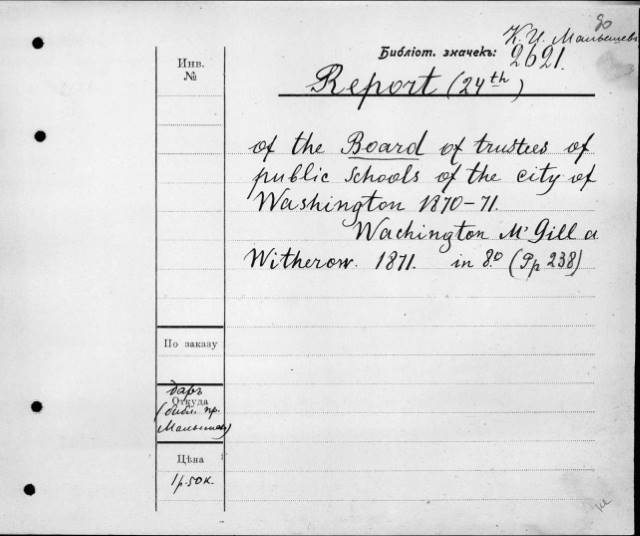 К. И. Малышев
Библіот. значекъ: 2621.
Инв.
№
Report (24th)
of the Board of trustees of
public schools of the city of
Washington 1870-71.
Wachington Mc Gill a
Witherow. 1871. in 8.o (Pp 238)
По заказу
даръ
Откуда
(библ. пр.
Малышев)
Цѣна
1р.50к.